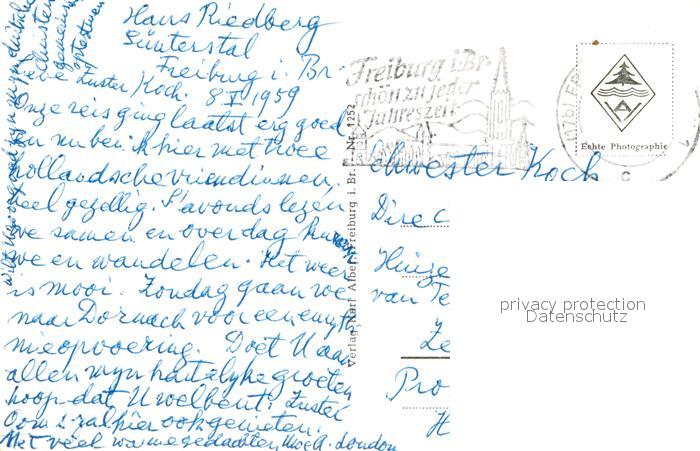 Haus Riedberg
Günterstal
Freiburg i. Br.
Zuster Koch. 8 V 1959
Onze reis ging laatst erg goed
en nu ben ik hier met twee
hollandsche vriendinnen,
heel gezellig. 's avonds lezen
we samen en overdag
we en wandelen. Het weer
is mooi. Zondag gaan we
naar Dornach voor een
opvoering. Doet U aan
allen mijn hartelijke groeten
hoop dat U wel bent. Zuster
zal hier ook genieten.
Met veel warme gedachten,
Verlag Karl Alber, Freiburg i. Br. - Nr. 1252
Freiburg i. Br.
schön zu jeder
Jahreszeit
Echte Photographie
Schwester Koch
Direc
Huize
van Te
Ze
Pro
H
privacy protection
Datenschutz